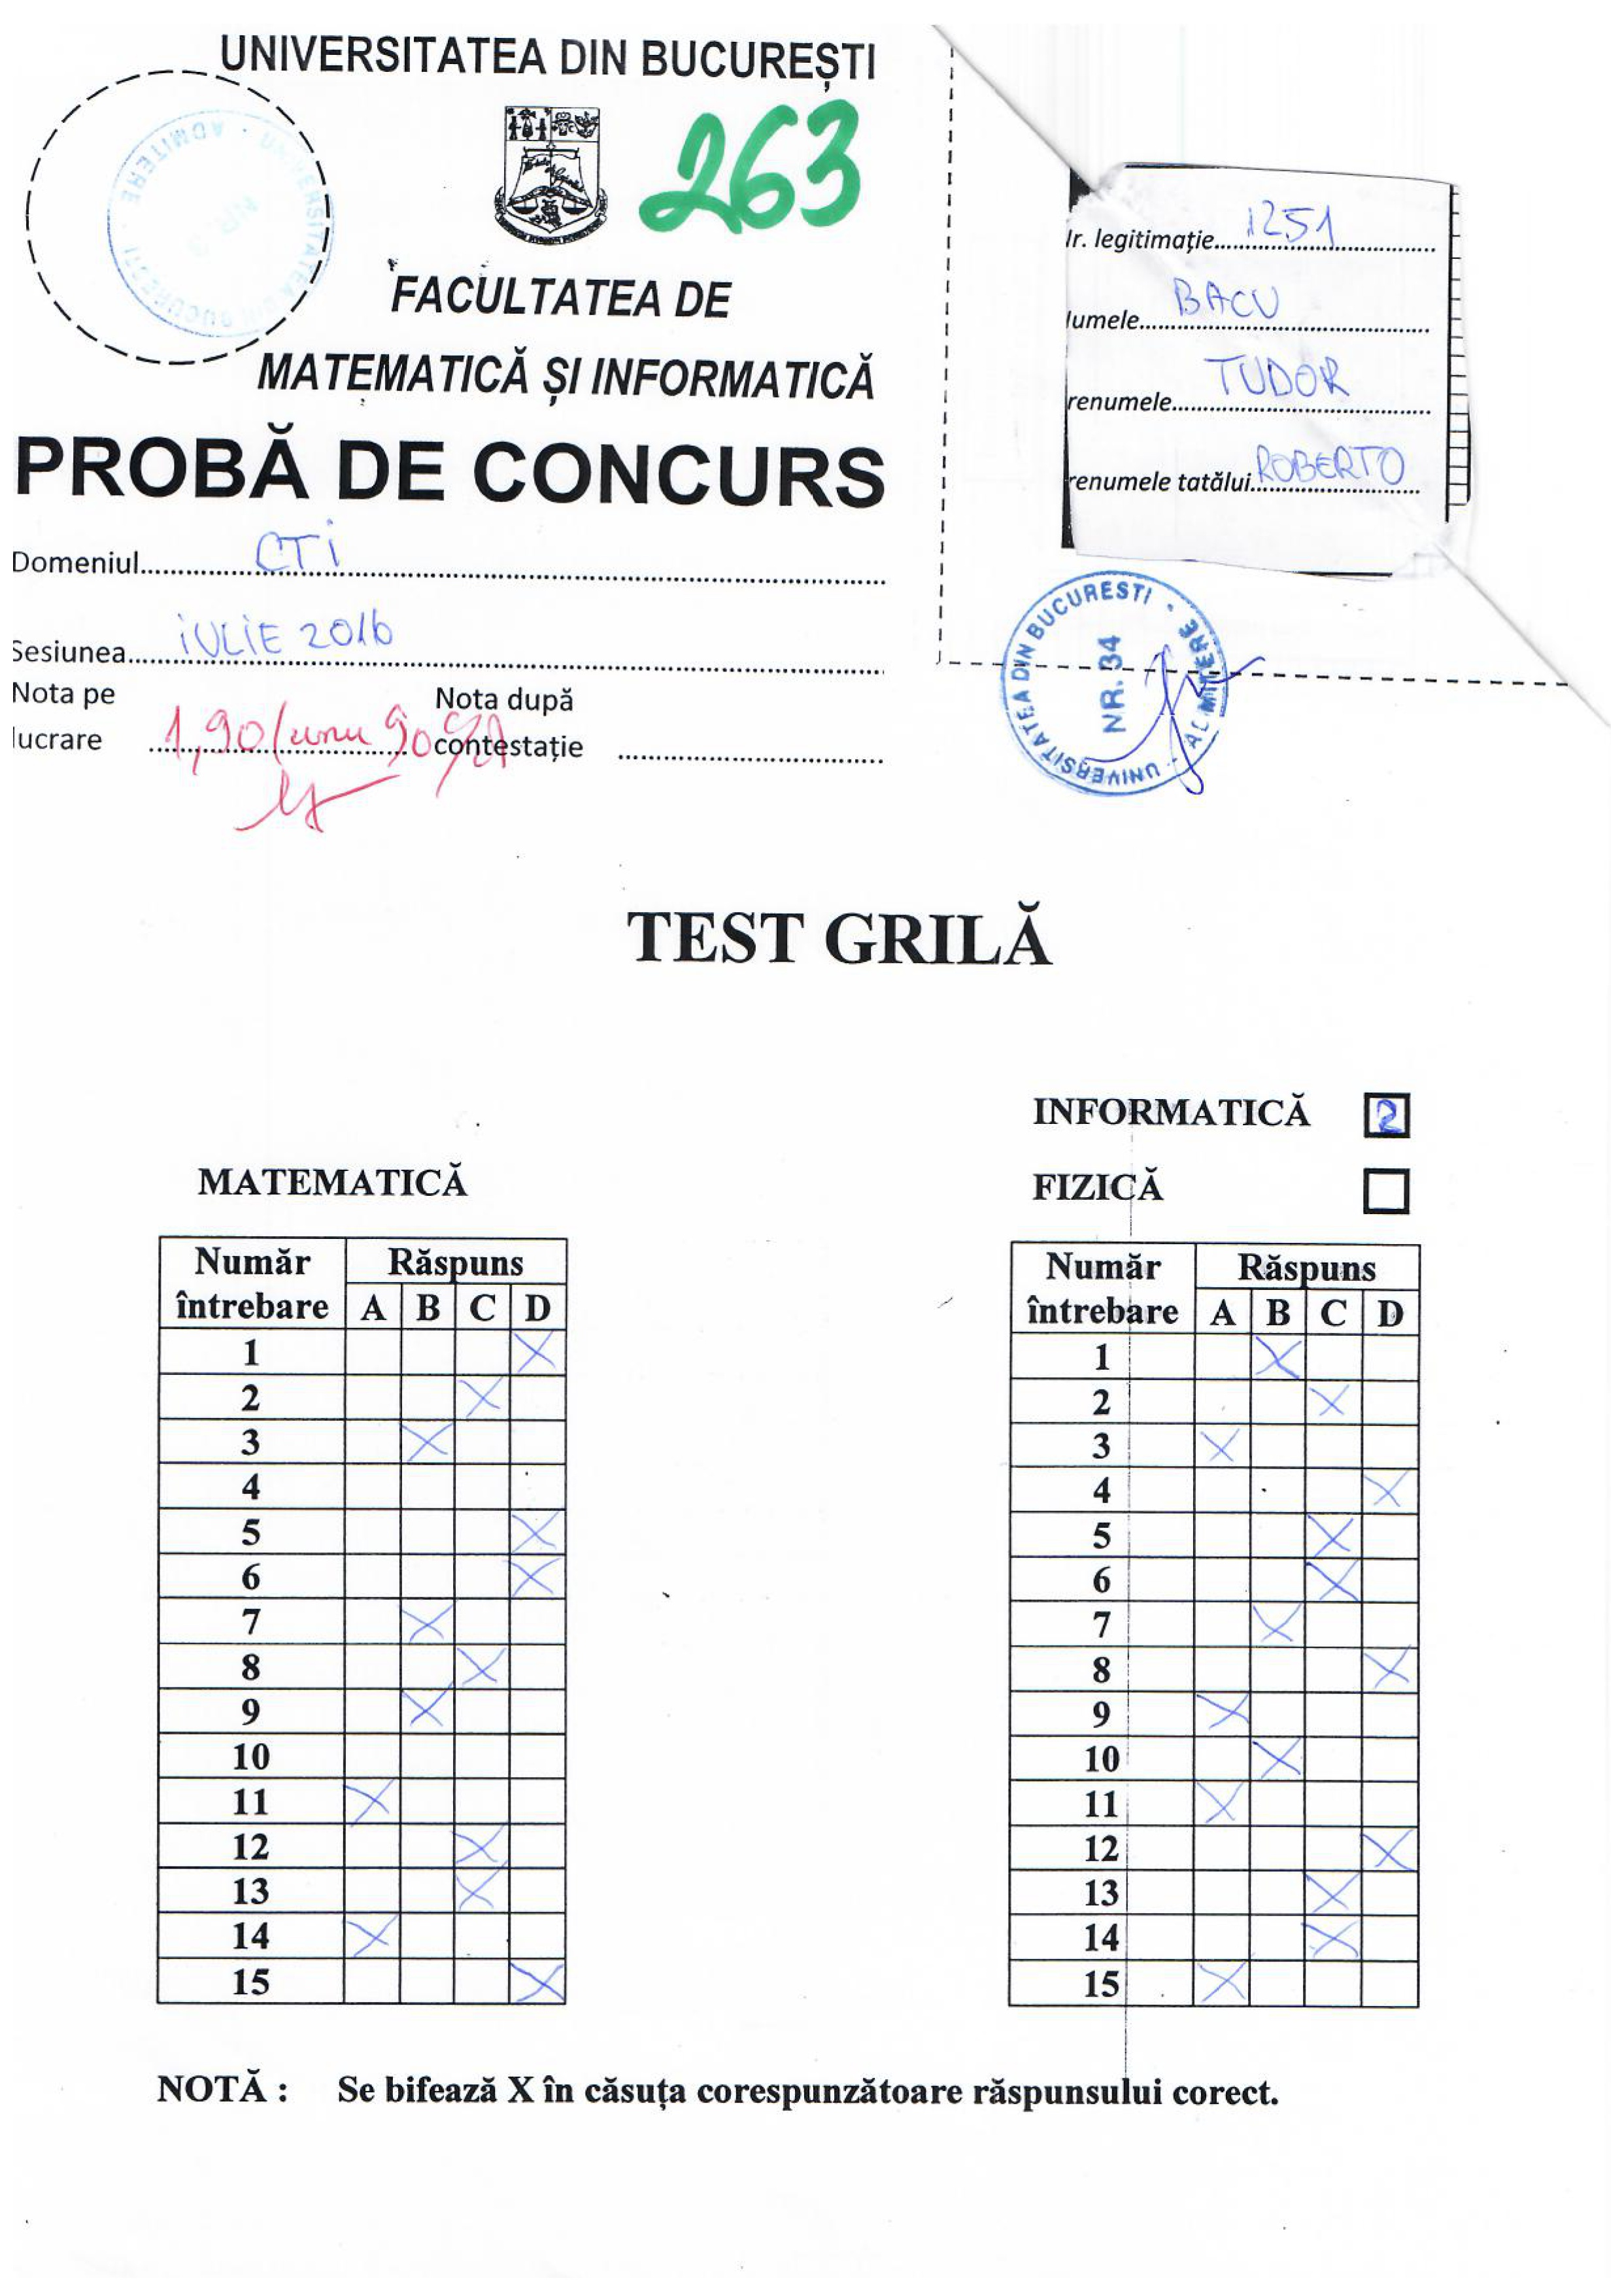 UNIVERSITATEA DIN BUCUREȘTI
263
FACULTATEA DE
MATEMATICĂ ȘI INFORMATICĂ
PROBĂ DE CONCURS
Domeniul CTI
Sesiunea IULIE 2016
Nota pe
lucrare 1,90 (unu 90%)
Nota după
contestație
r. legitimație 1251
umele BACU
renumele TUDOR
renumele tatălui ROBERTO
UNIVERSITATEA DIN BUCURESTI · ADMITERE ·
NR. 34
TEST GRILĂ
INFORMATICĂ 2
FIZICĂ
MATEMATICĂ
Număr întrebare Răspuns
A B C D
1 X
2 X
3 X
4
5 X
6 X
7 X
8 X
9 X
10
11 X
12 X
13 X
14 X
15 X
Număr întrebare Răspuns
A B C D
1 X
2 X
3 X
4 X
5 X
6 X
7 X
8 X
9 X
10 X
11 X
12 X
13 X
14 X
15 X
NOTĂ : Se bifează X în căsuța corespunzătoare răspunsului corect.